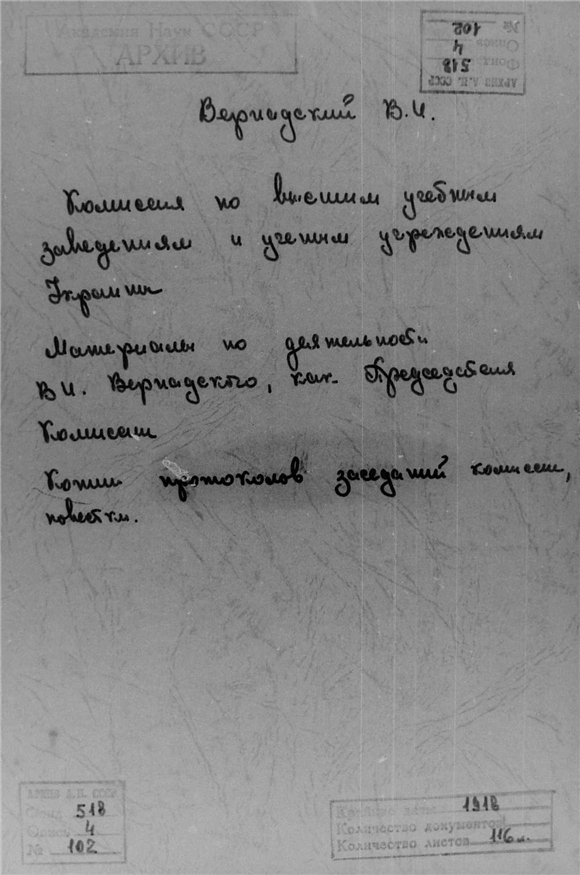 Академия Наук СССР
АРХИВ
АРХИВ А.Н. СССР
Фонд 518
Опись 4
№ 102
Вернадский В.И.
Комиссия по высшим учебным
заведениям и ученым учреждениям
Украины
Материалы по деятельности
В.И. Вернадского, как Председателя
Комиссии
Копии протоколов заседаний комиссии,
повестки.
АРХИВ А.Н. СССР
Фонд 518
Опись 4
№ 102
Крайние даты 1918
Количество документов
Количество листов 116 л.